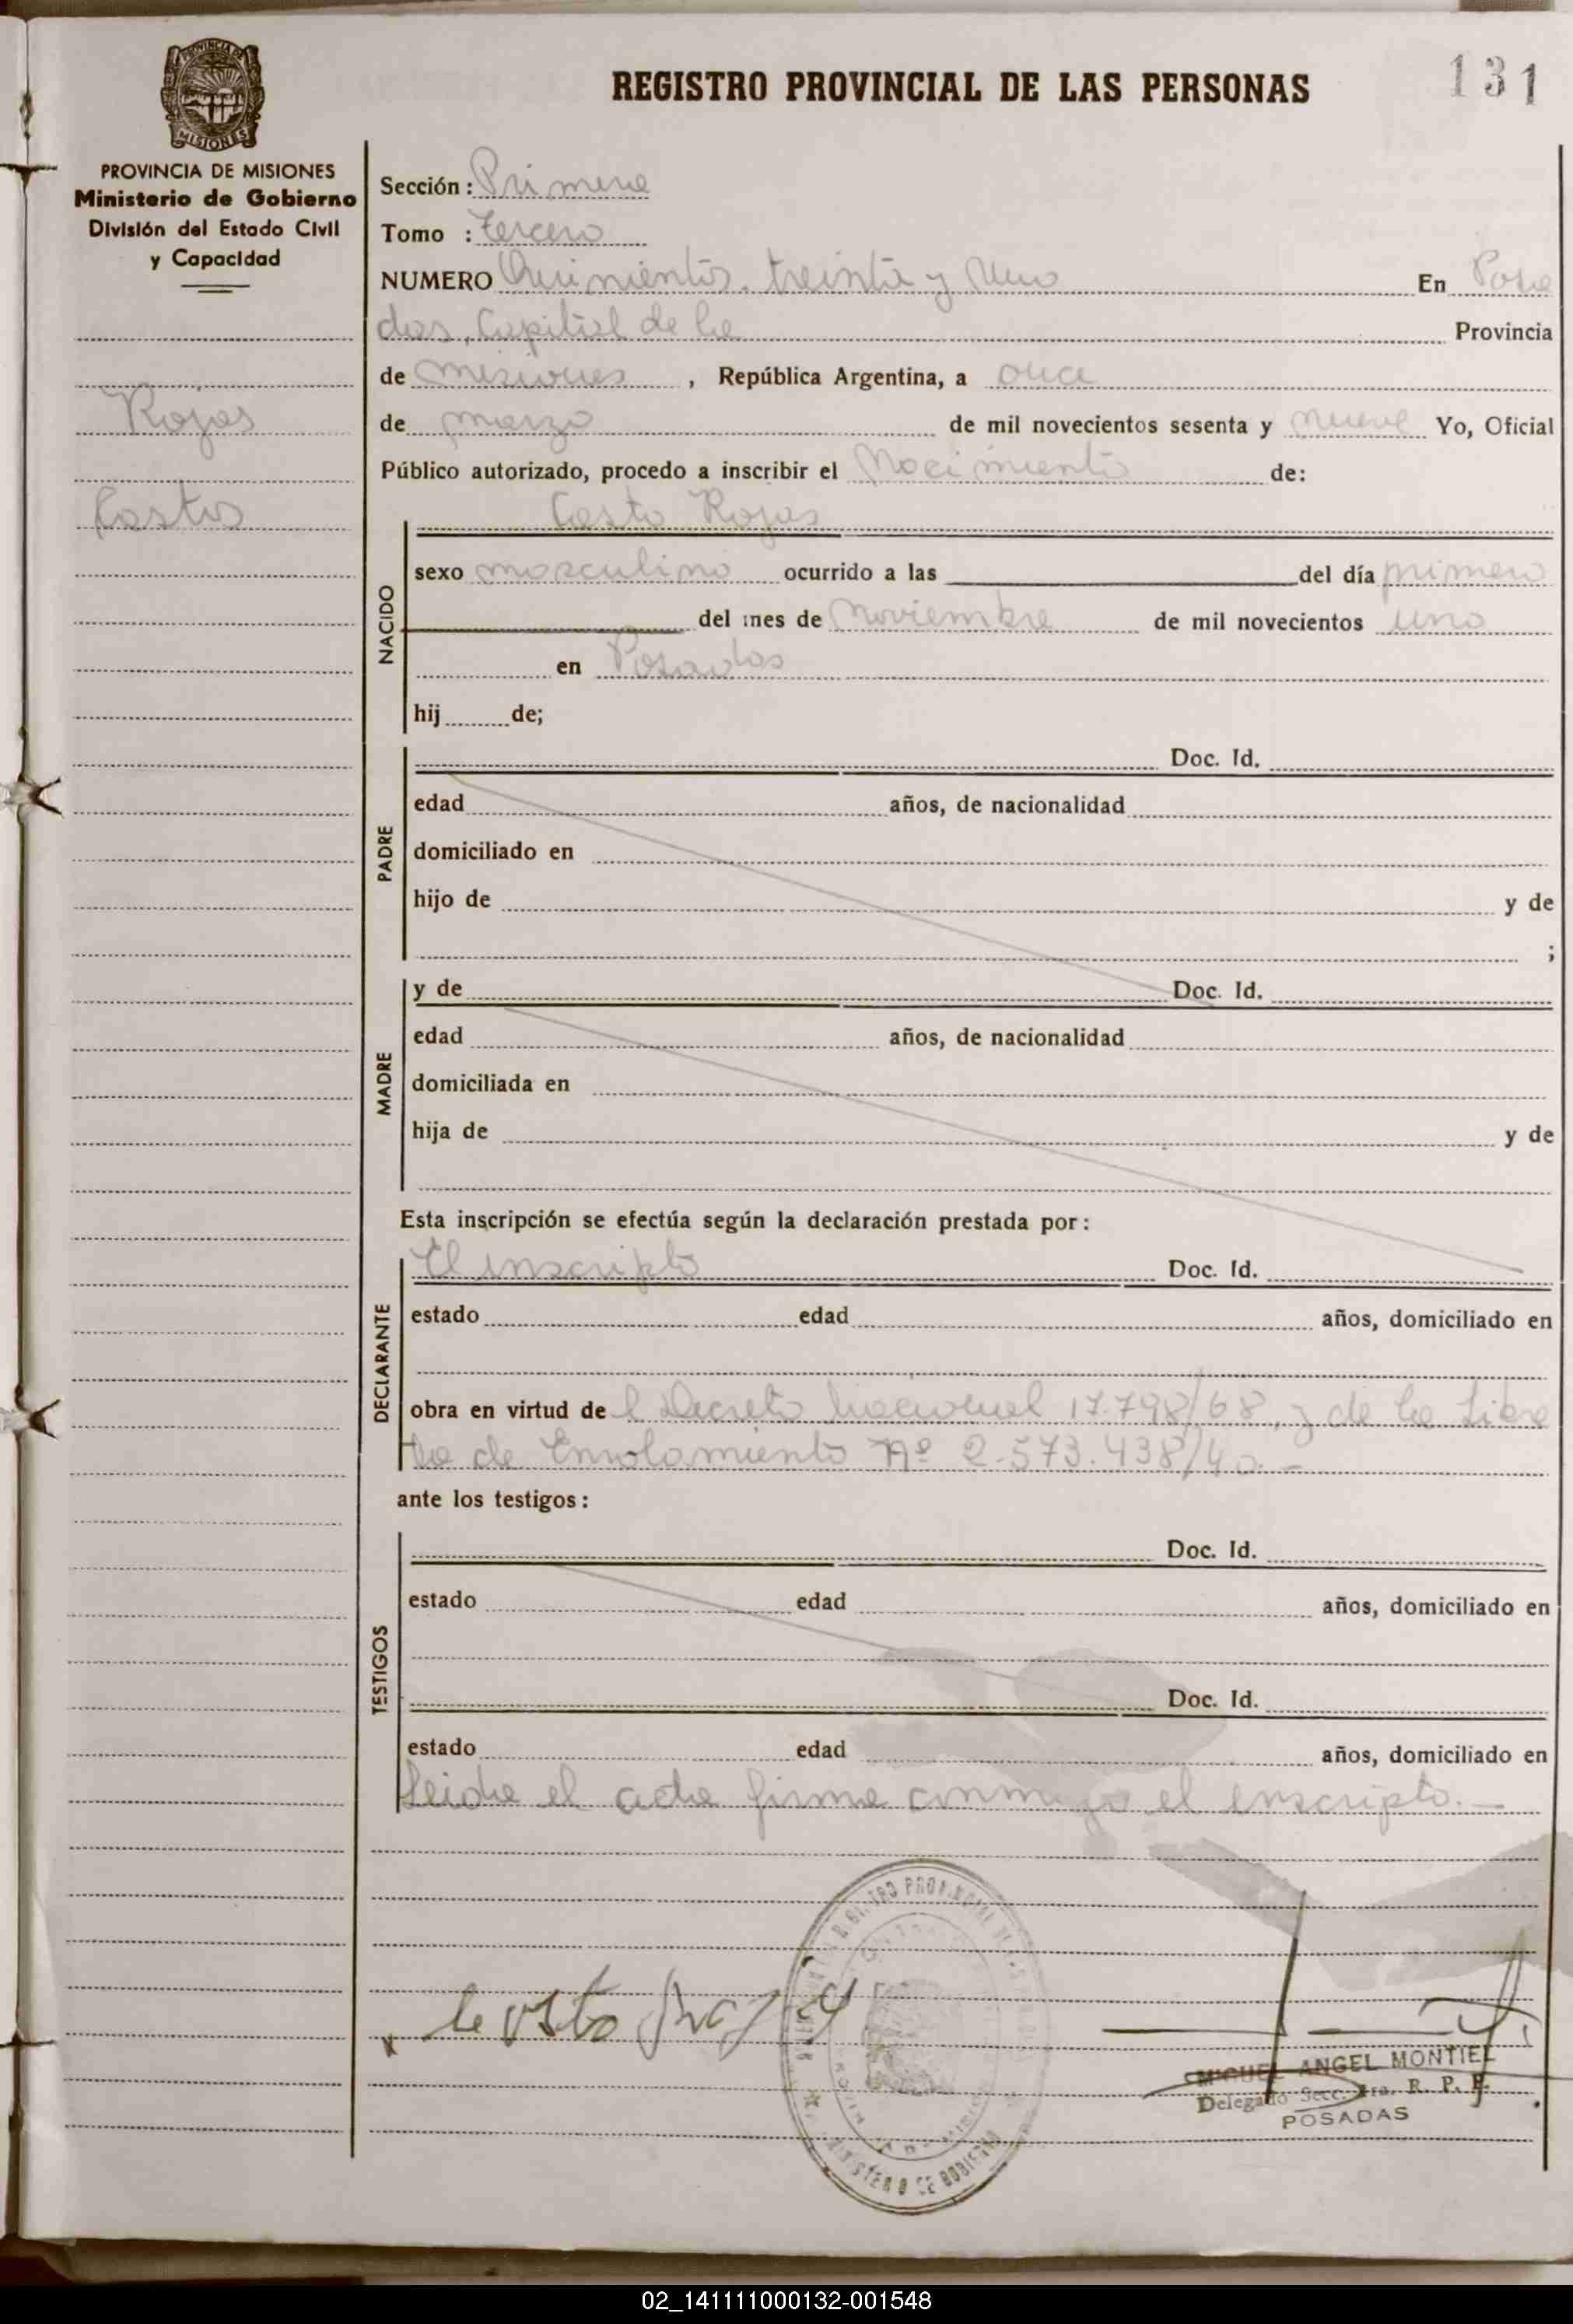 REGISTRO PROVINCIAL DE LAS PERSONAS
131
MISIONES
PROVINCIA DE MISIONES
Ministerio de Gobierno
División del Estado Civil
y Capacidad
Rojas
Casto
Sección : Primera
Tomo : tercero
NUMERO Quinientos treinta y Uno En Posa
das, Capital de la Provincia
de Misiones , República Argentina, a once
de marzo de mil novecientos sesenta y nueve Yo, Oficial
Público autorizado, procedo a inscribir el Nacimiento de:
NACIDO
Casto Rojas
sexo masculino ocurrido a las del día primero
del mes de Noviembre de mil novecientos uno
en Posadas
hij de;
PADRE
Doc. Id.
edad años, de nacionalidad
domiciliado en
hijo de y de
;
MADRE
y de Doc. Id.
edad años, de nacionalidad
domiciliada en
hija de y de
Esta inscripción se efectúa según la declaración prestada por :
DECLARANTE
El inscripto Doc. Id.
estado edad años, domiciliado en
obra en virtud de l Decreto Nacional 17.798/68, y de la Libre
ta de Enrolamiento Nº 2.573.438/40.-
ante los testigos :
TESTIGOS
Doc. Id.
estado edad años, domiciliado en
Doc. Id.
estado edad años, domiciliado en
Leida el acta firma conmigo el inscripto.—
MIGUEL ANGEL MONTIEL
Delegado Secc. 1ra. R. P. P.
POSADAS
MINISTERIO DE GOBIERNO
02_141111000132-001548